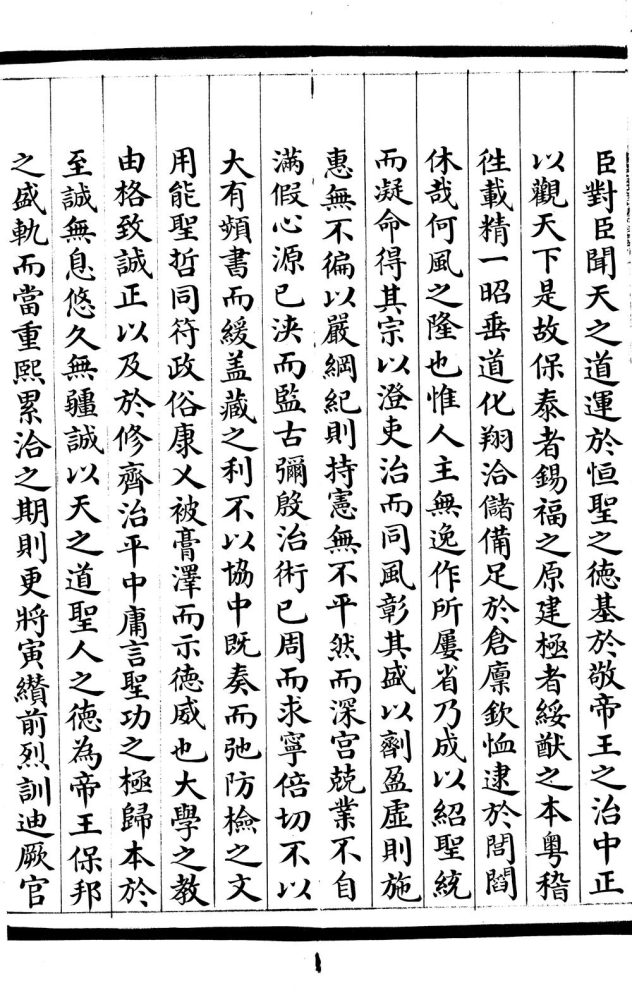 臣對臣聞天之道運於恒聖之徳基於敬帝王之治中正
以觀天下是故保泰者錫福之原建極者綏猷之本粤稽
徃載精一昭垂道化翔洽儲備足於倉廪欽恤逮於閭閻
休哉何風之隆也惟人主無逸作所屢省乃成以紹聖統
而凝命得其宗以澄吏治而同風彰其盛以劑盈虛則施
惠無不徧以嚴綱紀則持憲無不平然而深宫兢業不自
滿假心源已浹而監古彌殷治術已周而求寧倍切不以
大有頻書而緩盖藏之利不以協中既奏而弛防檢之文
用能聖哲同符政俗康乂被膏澤而示徳威也大學之教
由格致誠正以及於修齊治平中庸言聖功之極歸本於
至誠無息悠久無疆誠以天之道聖人之徳為帝王保邦
之盛軌而當重熙累洽之期則更將寅纉前烈訓迪厥官